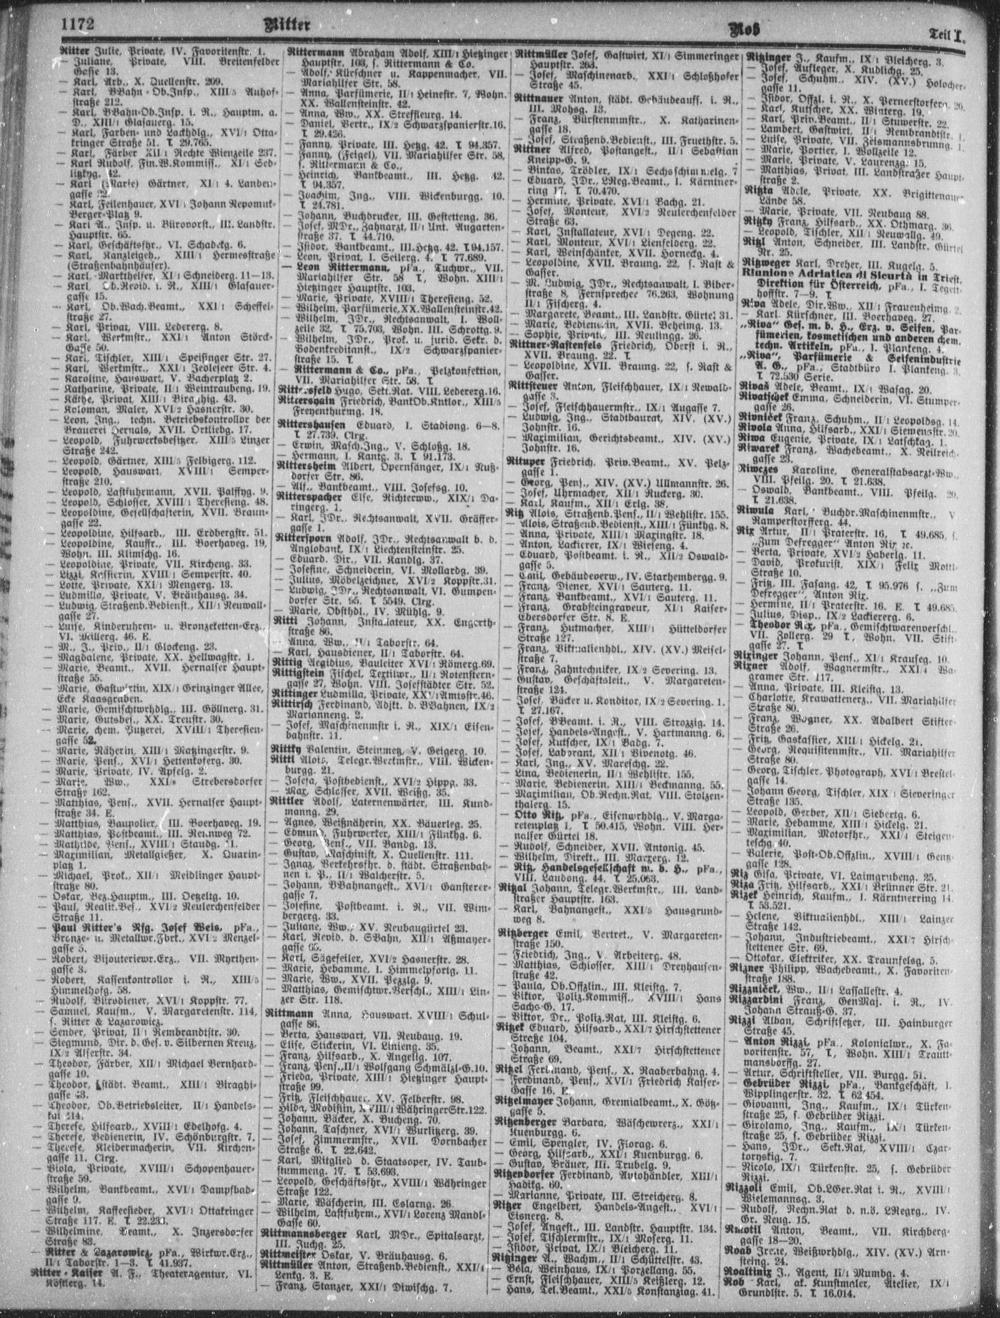 1172
Ritter
Rob
Teil I.
Ritter Julie, Private, IV. Favoritenstr. 1.
— Juliane, Private, VIII. Breitenfelder
Gasse 13.
— Karl, Arb., X. Quellenstr. 209.
— Karl, BBahn-Ob.Insp., XIII/5 Auhof-
straße 212.
— Karl, BBahn-Ob.Insp. i. R., Hauptm. a.
D., XIII/1 Glasauerg. 15.
— Karl, Farben- und Lackhdlg., XVI/1 Otta-
kringer Straße 51. T 29.765.
— Karl, Färber XII/1 Rechte Wienzeile 237.
— Karl Rudolf, Fin.W.Kommiss., XI/1
— Karl (Marie) Gärtner, XI/1 4. Landen-
— Karl, Feilenhauer, XVI/1 Johann Nepomuk-
Berger-Platz 9.
— Karl A., Insp. u. Bürovorst., III. Landstr.
Hauptstr. 65.
— Karl, Geschäftsfhr., VI. Schadekg. 6.
— Karl, Kanzleigeh., XIII/1 Hermesstraße
(Straßenbahnhäuser).
— Karl, Markthelfer, XI/1 Schneiderg. 11–13.
— Karl, Ob.Revid. i. R., XIII/1 Glasauer-
gasse 15.
— Karl, Ob.Wach.Beamt., XXI/1 Scheffel-
straße 27.
— Karl, Privat, VIII. Ledererg. 8.
— Karl, Werkmstr., XXI/1 Anton Störck-
Gasse 50.
— Karl, Tischler, XIII/1 Speisinger Str. 27.
— Karl, Werkmstr., XXI/1 Leoleser Str. 4.
— Karoline, Hauswart, V. Bacherplatz 2.
— Katharine, Private, II/1 Weintraubeng. 19.
— Käthe, Privat, XIII/1 Biraghig. 43.
— Koloman, Maler, XVI/2 Hasnerstr. 30.
— Leon, Ing., techn. Betriebskontrollor der
Brauerei Hernals, XVII. Ortliebg. 17.
— Leopold, Fuhrwerksbesitzer, XIII/5 Linzer
Straße 242.
— Leopold, Gärtner, XIII/5 Felbigerg. 112.
— Leopold, Hauswart, XVIII/1 Semper-
straße 210.
— Leopold, Lastfuhrmann, XVII. Palffyg. 9.
— Leopold, Schlosser, XVIII/1 Theresieng. 48.
— Leopoldine, Gesellschafterin, XVII. Braun-
gasse 22.
— Leopoldine, Hilfsarb., III. Erdbergstr. 51.
— Leopoldine, Kauffr., III. Boerhaveg. 19,
Wohn. III. Klimschg. 16.
— Leopoldine, Private, XVII. Kircheng. 33.
— Lizzi, Kassierin, XVIII/1 Semperstr. 40.
— Lotte, Private, XXI/1 Mengerg. 13.
— Ludmilla, Private, V. Bräuhausg. 34.
— Ludwig, Straßenb.Bedienst., XII/1 Neuwall-
gasse 27.
— Luise, Kinderuhren- u. Bronzeketten-Erz.,
VI. Millerg. 46. E.
— M., J., Priv., II/1 Glockeng. 23.
— Magdalene, Private, XX. Hellwagstr. 1.
— Marie, Beamt., XVII. Hernalser Haupt-
straße 55.
— Marie, Gastwirtin, XIX/1 Grinzinger Allee,
Ecke Kaasgraben.
— Marie, Gemischtwrhdlg., III. Göllnerg. 31.
— Marie, Gutsbes., XX. Treustr. 30.
— Marie, chem. Putzerei, XVIII/1 Theresien-
gasse 52.
— Marie, Näherin, XIII/1 Matzingerstr. 9.
— Marie, Pens., XVI/1 Hettenkoferg. 30.
— Marie, Private, IV. Apfelg. 2.
— Marie, Ww., XXI/8 Strebersdorfer
Straße 162.
— Matthias, Pens., XVII. Hernalser Haupt-
straße 34. E.
— Matthias, Baupolier, III. Boerhaveg. 19.
— Matthias, Postbeamt., III. Rennweg 72.
— Mathilde, Pens., XVIII/1 Staudg.
— Maximilian, Metallgießer, X. Quarin-
platz 1.
— Michael, Prok., XII/1 Meidlinger Haupt-
straße 80.
— Oskar, Bez.Hauptm., III. Oetzeltg. 10.
— Paul, Realit.Bes., XVI/2 Neulerchenfelder
Straße 11.
— Paul Ritter's Nfg. Josef Weis, pFa.,
Bronze- u. Metallwr.Fbrt., XVI/2 Menzel-
gasse 5.
— Robert, Bijouteriewr.Erz., VII. Myrthen-
gasse 3.
— Robert, Kassenkontrollor i. R., XIII/5
Himmelhofg. 58.
— Rudolf, Bürodiener, XVI/1 Koppstr. 77.
— Samuel, Kaufm., V. Margaretenstr. 114,
s. Ritter & Lazarowicz.
— Sender, Privat, II/1 Rembrandtstr. 30.
— Siegmund, Dir. d. Ges. v. Silbernen Kreuz,
IX/2 Alserstr. 34.
— Theodor, Färber, XII/1 Michael Bernhard-
gasse 10.
— Theodor, städt. Beamt., XIII/1 Biraghi-
— Theodor, Ob.Betriebsleiter, II/1 Handels-
kai 214.
— Therese, Hilfsarb., XVIII/1 Edelhofg. 4.
— Therese, Bedienerin, IV. Schönburgstr. 7.
— Therese, Kleidermacherin, VII. Kirchen-
gasse 11. Clrg.
— Viola, Private, XVIII/1 Schopenhauer-
straße 59.
— Wilhelm, Bankbeamt., XVI/1 Dampfbad-
gasse 9.
— Wilhelm, Kaffeesieder, XVI/1 Ottakringer
Straße 117. E. T 22.233.
— Wilhelmine, Beamt., X. Inzersdorfer
Straße 83.
— Ritter & Lazarowicz, pFa., Wirkwr.Erz.,
II/1 Taborstr. 1–3. T 41.937.
Ritter-Kaiser A. F., Theateragentur, VI.
Köstlerg. 14.
Rittermann Abraham Adolf, XIII/1 Hietzinger
Hauptstr. 103, s. Rittermann & Co.
— Adolf, Kürschner u. Kappenmacher, VII.
Mariahilfer Str. 58.
— Anna, Parfümerie, II/1 Heinestr. 7, Wohn.
XX. Wallensteinstr. 42.
— Anna, Ww., XX. Streffleurg. 14.
— Daniel, Vertr., IX/2 Schwarzspanierstr. 16.
T 29.426.
— Fanny, Private, III. Hetzg. 42. T 94.357.
— Fanny, (Feigel), VII. Mariahilfer Str. 58,
s. Rittermann & Co.
— Heinrich, Bankbeamt., III. Hetzg. 42.
T 94.357.
— Joachim, Ing., VIII. Wickenburgg. 10.
T 24.781.
— Johann, Buchdrucker, III. Gestetteng. 36.
— Josef, MDr., Zahnarzt, II/1 Unt. Augarten-
straße 37. T 44.710.
— Isidor, Bankbeamt., III. Hetzg. 42. T 94.157.
— Leon, Privat, I. Seilerg. 4. T 77.689.
— Leon Rittermann, pFa., Tuchwr., VII.
Mariahilfer Str. 58 T, Wohn. XIII/1
Hietzinger Hauptstr. 103.
— Marie, Private, XVIII/1 Theresieng. 52.
— Wilhelm, Parfümerie, XX. Wallensteinstr. 42.
— Wilhelm, JDr., Rechtsanwalt, I. Woll-
zeile 32, T 75.703, Wohn. III. Schrottg. 9.
— Wilhelm, JDr., Prok. u. jurid. Sekr. d.
Bodenkreditanst., IX/2 Schwarzspanier-
straße 15. T
— Rittermann & Co., pFa., Pelzkonfektion,
VII. Mariahilfer Str. 58. T
Rittersfeld Hugo, Sekt.Rat, VIII. Ledererg. 16.
Ritterspain Friedrich, BankOb.Kntlor., XIII/5
Freyenthurmg. 18.
Rittershausen Eduard, I. Stadiong. 6–8.
T 27.739. Clrg.
— Erwin, Masch.Ing., V. Schloßg. 18.
— Hermann, I. Kantg. 3. T 91.173.
Rittersheim Albert, Opernsänger, IX/1 Nuß-
dorfer Str. 86.
— Alf., Bankbeamt., VIII. Josefsg. 10.
Ritterspacher Else, Richtersww., XIX/1 Da-
ringerg. 1.
— Karl, JDr., Rechtsanwalt, XVII. Gräffer-
gasse 1.
Rittersporn Adolf, JDr., Rechtsanwalt b. d.
Anglobant., IX/1 Liechtensteinstr. 25.
— Eduard, Dir., VII. Kandlg. 37.
— Josefine, Schneiderin, VI. Mollardg. 39.
— Julius, Möbelzeichner, XVI/2 Koppstr. 31.
— Ludwig, JDr., Rechtsanwalt, VI. Gumpen-
dorfer Str. 95. T 5549. Clrg.
— Marie, Obsthdl., IV. Mühlg. 9.
Ritti Johann, Installateur, XX. Engerth-
straße 86.
— Anna, Ww., II/1 Taborstr. 64.
— Karl, Hausdiener, II/1 Taborstr. 64.
Rittig Aegidius, Bauleiter XVI/1 Römerg. 69.
Rittigstein Fischel, Textilwr., II/1 Rotenstern-
gasse 27, Wohn. VIII. Josefstädter Str. 52.
Rittinger Ludmilla, Private, XX/1 Amtsstr. 46.
Rittirsch Ferdinand, Adjkt. d. BBahnen, IX/2
Marianneng. 2.
— Josef, Maschinenmstr i. R., XIX/1 Eisen-
bahnstr. 11.
Rittky Valentin, Steinmetz, V. Geigerg. 10.
Rittl Alois, Telegr.Werkmstr., VIII. Wicken-
burgg. 21.
— Josefa, Postbedienst., XVI/2 Hippg. 33.
— Max, Schlosser, XVII. Weißg. 35.
Rittler Adolf, Laternenwärter, III. Kund-
manng. 29.
— Agnes, Weißnäherin, XX. Bäuerleg. 25.
— Edmund, Fuhrwerker, XIII/1 Fünkhg. 6.
— Georg, Pens., VII. Bandg. 13.
— Gustav, Maschinist, X. Quellenstr. 111.
— Ignaz, Verkehrsfhr. d. städt. Straßenbah-
nen i. P., II/1 Walcherstr. 5.
— Johann, BBahnangest., XV/1 Gansterer-
gasse 7.
— Josefine, Postbeamt. i. R., VII. Wim-
bergerg. 33.
— Juliane, Ww., XV. Neubaugürtel 23.
— Karl, Revid. d. SBahn, XII/1 Aßmayer-
gasse 65.
— Karl, Sägefeiler, XVI/2 Hasnerstr. 28.
— Marie, Hebamme, I. Himmelpfortg. 11.
— Marie, Ww., XVII. Pezzlg. 9.
— Matthias, Gemischtwr.Verschl., XIII/1 Lin-
zer Str. 118.
Rittmann Anna, Hauswart, XVIII/1 Schul-
gasse 86.
— Berta, Hauswart, VII. Neubaug. 19.
— Elise, Sickerin, VI. Linieng. 35.
— Franz, Hilfsarb., X. Angelig. 107.
— Franz, Pens., II/1 Wolfgang Schmälzl-G. 10.
— Frieda, Private, XIII/1 Hietzinger Haupt-
straße 99.
— Fritz, Fleischhauer, XV. Felberstr. 98.
— Hilda, Modistin, XVIII/1 Währinger Str. 122.
— Johann, Bäcker, X. Bucheng. 70.
— Johann, Taschner, XVI/1 Gürtlitzerg. 39.
— Josef, Zimmermstr., XVII. Dornbacher
Straße 6. T 22.642.
— Karl, Mitglied d. Staatsoper, IV. Taub-
stummeng. 17. T 53.693.
— Leopold, Geschäftsfhr., XVIII/1 Währinger
Straße 122.
— Marie, Wäscherin, III. Eslarng. 26.
— Wilhelm, Lastfuhrm., XVI/1 Lorenz Mandl-
Gasse 60.
Rittmannsberger Karl, MDr., Spitalsarzt,
III. Juchg. 25.
Rittmeister Oskar, V. Bräuhausg. 6.
Rittmüller Anton, Straßenb.Bedienst., XXI/1
Lenkg. 3. E.
— Franz, Stanzer, XXI/1 Diwischg. 7.
Rittmüller Josef, Gastwirt, XI/1 Simmeringer
Hauptstr. 263.
— Josef, Maschinenarb., XXI/1 Schloßhofer
Straße 45.
Rittnauer Anton, städt. Gebäudeauff. i. R.,
III. Mohsg. 13.
— Franz, Bürstenmstr., X. Katharinen-
gasse 18.
— Josef, Straßenb.Bedienst., III. Fruethstr. 5.
Rittner Alfred, Postangest., II/1 Sebastian
Kneipp-G. 9.
— Binkas, Trödler, IX/1 Sechsschimmelg. 7
— Eduard, JDr., LReg.Beamt., I. Kärntner-
ring 17. T 70.470.
— Hermine, Private, XVI/1 Bachg. 21.
— Josef, Monteur, XVI/2 Neulerchenfelder
Straße 63.
— Karl, Installateur, XVI/1 Degeng. 22.
— Karl, Monteur, XVI/1 Lienfelderg. 22.
— Karl, Weinschänker, XVII. Horneckg. 4.
— Leopoldine, XVII. Braung. 22, s. Rast &
Gasser.
— M. Ludwig, JDr., Rechtsanwalt, I. Biber-
straße 8, Fernsprecher 76.263, Wohnung
II/1 Fischerg. 4.
— Margarete, Beamt., III. Landstr. Gürtel 31.
— Marie, Bedienerin, XVII. Beheimg. 13.
— Sophie, Privat., III. Reulingg. 26.
Rittner-Rastenfels Friedrich, Oberst i. R.,
XVII. Braung. 22. T
— Leopoldine, XVII. Braung. 22, s. Rast &
Gasser.
Rittsteuer Anton, Fleischhauer, IX/1 Newald-
gasse 3.
— Josef, Fleischhauermstr., IX/1 Augasse 7.
— Ludwig, Ing., Stadtbaurat, XIV. (XV.)
Johnstr. 16.
— Maximilian, Gerichtsbeamt., XIV. (XV.)
Johnstr. 16.
Rituper Friedrich, Priv.Beamt., XV. Pelz-
gasse 1.
— Georg, Pens., XIV. (XV.) Ullmannstr. 26.
— Josef, Uhrmacher, XII/1 Ruckerg. 30.
— Karl, Kaufm., XII/1 Erlg. 38.
Ritz Alois, Straßenb.Pens., II/1 Wehlistr. 155.
— Alois, Straßenb.Bedienst., XIII/1 Fünkhg. 8.
— Anna, Private, XIII/1 Maxingstr. 18.
— Anton, Lackierer, IX/1 Wieseng. 4.
— Eduard, Postbeamt. i. R., XII/2 Oswald-
gasse 5.
— Emil, Gebäudeverw., IV. Starhembergg. 9.
— Franz, Diener, XVI/1 Sauterg. 11.
— Franz, Bankbeamt., XVI/1 Sauterg. 11.
— Franz, Grabsteingraveur, XI/1 Kaiser-
Ebersdorfer Str. 8. E.
— Franz, Hutmacher, XIII/1 Hütteldorfer
Straße 127.
— Franz, Viktualienhdl., XIV. (XV.) Meisel-
straße 7.
— Franz, Zahntechniker, IX/2 Severing. 13.
— Gustav, Geschäftsleit., V. Margareten-
straße 124.
— Josef, Bäcker u. Konditor, IX/2 Severing. 1.
T 27.167.
— Josef, BBeamt. i. R., VIII. Strozzig. 14.
— Josef, Handels-Angest., V. Hartmanng. 6.
— Josef, Kutscher, IX/1 Badg. 7.
— Josef, Laborant, XII/1 Bivenotg. 46.
— Karl, Ing., XV. Mareschg. 22.
— Lina, Bedienerin, II/1 Wehlistr. 155.
— Marie, Bedienerin, XIII/1 Beckmanng. 55.
— Maximilian, Ob.Rechn.Rat, VIII. Stolzen-
thalerg. 15.
— Otto Ritz, pFa., Eisenwrhdlg., V. Marga-
retenplatz 1, T 50.415, Wohn. VIII. Her-
nalser Gürtel 18.
— Rudolf, Schneider, XVII. Antonig. 45.
— Wilhelm, Direkt., III. Marxerg. 12.
— Ritz, Handelsgesellschaft m. b. H., pFa.,
VIII. Laudong. 44. T 25.063.
Ritzal Johann, Telegr.Werkmstr., III. Land-
straßer Hauptstr. 163.
— Karl, Bahnangest., XXI/5 Hausgrund-
weg 8.
Ritzberger Emil, Vertret., V. Margareten-
straße 150.
— Friedrich, Ing., V. Arbeiterg. 48.
— Matthias, Schlosser, XIII/1 Dreyhausen-
straße 42.
— Paula, Ob.Offzlin., III. Kleistg. 7.
— Viktor, Poliz.Kommiss., XVIII/1 Hans
Sachs-G. 17.
— Viktor, Dr., Poliz.Rat, III. Kleistg. 6.
Ritzek Eduard, Hilfsarb., XXI/7 Hirschstettener
Straße 104.
— Johann, Beamt., XXI/7 Hirschstettener
Straße 69.
Ritzel Ferdinand, Pens., X. Raaberbahng. 4.
— Ferdinand, Pens., XVI/1 Friedrich Kaiser-
Gasse 16. E.
Ritzelmayer Johann, Gremialbeamt., X. Götz-
gasse 5.
Ritzenberger Barbara, Wäschewrerz., XXI/1
Kuenburgg. 6.
— Emil, Spengler, IV. Floragg. 6.
— Georg, Hilfsarb., XXI/1 Kuenburgg. 6.
— Gustav, Bräuer, III. Trubelg. 9.
Ritzendorfer Ferdinand, Autohändler, XIII/1
Hadikg. 60.
— Marianne, Private, III. Streicherg. 8.
Ritzer Engelbert, Handels-Angest., XV/1
Eisnerg. 8.
— Josef, Angest., III. Landstr. Hauptstr. 134.
— Josef, Tischlermstr., IX/1 Moserg. 11.
— Isidor, Privat, IX/1 Bleicherg. 11.
Ritzinger A., Wachm., II/1 Schüttelstr. 43.
— Béla, Weinhaus, IX/1 Porzellang. 55.
— Ernst, Fleischhauer, XIII/5 Keißlerg. 12.
— Hans, Tel.Beamt., XXI/5 Konstanziag. 41.
Ritzinger J., Kaufm., IX/1 Bleicherg. 3.
— Josef, Aufleger, X. Kudlichg. 25.
— Josef, Schuhm., XIV. (XV.) Holocher-
gasse 11.
— Isidor, Offzl. i. R., X. Pernerstorferg. 26.
— Karl, Kutscher, XX. Winterg. 19.
— Karl, Priv.Beamt., II/1 Stuwerstr. 22.
— Lambert, Gastwirt, II/1 Rembrandtstr. 1.
— Luise, Private, VII. Zeismannsbrunng. 1.
— Marie, Portier, I. Wollzeile 12.
— Marie, Private, V. Laurenzg. 15.
— Matthias, Privat, III. Landstraßer Haupt-
straße 2.
Ritzka Adele, Private, XX. Brigittenauer
Lände 58.
— Marie, Private, VII. Neubaug 88.
Ritzky Franz, Hilfsarb., XX. Othmarg. 36.
— Leopold, Tischler, XII/1 Neuwallg. 49.
Ritzl Anton, Schneider, III. Landstr. Gürtel
Nr. 25.
Ritzweger Karl, Dreher, III. Kugelg. 5.
Riunione Adriatica di Sicurtà in Triest,
Direktion für Österreich, pFa., I. Tegett-
hoffstr. 7–9. T
Riva Adele, Dir.Ww., XII/1 Frauenheimg. 2.
— Karl, Kürschner, III. Boerhaveg. 27.
„Riva“ Ges. m. b. H., Erz. v. Seifen, Par-
fümerien, kosmetischen und anderen chem.
techn. Artikeln, pFa., I. Plankeng. 4.
„Riva“, Parfümerie & Seifenindustrie
A. G., pFa., Stadtbüro I. Plankeng. 3.
T 72.530 Serie.
Rivaß Adele, Beamt., IX/1 Wasag. 20.
Rivatschek Emma, Schneiderin, VI. Stumper-
gasse 26.
Rivniček Franz, Schuhm., II/1 Leopoldsg. 14.
Rivola Anna, Hilfsarb., XXI/1 Siemensstr. 20.
Riwa Eugenie, Private, IX/1 Latschkag. 1.
Riwarek Franz, Wachebeamt., X. Neilreich-
gasse 23.
Riwczes Karoline, Generalstabsarzt-Ww.,
VIII. Pfeilg. 20. T 21.638.
— Oswald, Bankbeamt., VIII. Pfeilg. 20.
T 21.638.
Riwula Karl, Buchdr.Maschinenmstr., V.
Ramperstorfferg. 44.
Rix Artur, II/1 Praterstr. 16, T 49.685, s.
„Zum Defregger“ Anton Rix.
— Berta, Private, XVI/2 Haberlg. 11.
— David, Prokurist, XIX/1 Felix Mottl-
Straße 10.
— Fritz, III. Fasang. 42, T 95.976, s. „Zum
Defregger“, Anton Rix.
— Hermine, II/1 Praterstr. 16. E. T 49.685.
— Julius, Disp., IX/2 Lackiererg. 6.
— Theodor Rix, pFa., Gemischtwarenverschl.,
VII. Zollerg. 29 T, Wohn. VII. Stift-
gasse 27.
Rixinger Johann, Pens., XI/1 Krauseg. 10.
Rixner Adolf, Wagnermstr., XXI/1 Wa-
gramer Str. 117.
— Anna, Private, III. Kleistg. 13.
— Charlotte, Krawattenerz., VII. Mariahilfer
Straße 80.
— Franz, Wagner, XX. Adalbert Stifter-
Straße 26.
— Fritz, Gaskassier, XIII/1 Hickelg. 21.
— Georg, Requisitenmstr., VII. Mariahilfer
Straße 80.
— Georg, Tischler, Photograph, XVI/1 Brestel-
gasse 14.
— Johann Georg, Tischler, XIX/1 Sieveringer
Straße 135.
— Leopold, Gerber, XII/1 Siebertg. 6.
— Marie, Hebamme, XIII/1 Hickelg. 21.
— Maximilian, Motorfhr., XXI/1 Steigen-
teschg. 40.
— Valerie, Post-Ob.Offzlin., XVIII/1 Gentz-
gasse 128.
Riz Gisa, Private, VI. Laimgrubeng. 25.
Riza Fritz, Hilfsarb., XXI/1 Brünner Str. 21.
Rizek Heinrich, Kaufm., I. Kärntnerring 14.
T 53.521.
— Helene, Viktualienhdl., XIII/1 Lainzer
Straße 142.
— Johann, Industriebeamt., XXI/7 Hirsch-
stettener Str. 69.
— Ottokar, Elektriker, XX. Traunfelsg. 5.
Rizner Philipp, Wachebeamt., X. Favoriten-
straße 188.
Rizzniček, Ww., II/1 Lassallestr. 4.
Rizzardini Franz, GenMaj. i. R., IV.
Johann Strauß-G. 37.
Rizzi Alban, Schriftsetzer, III. Hainburger
Straße 45.
— Anton Rizzi, pFa., Kolonialwr., X. Fa-
voritenstr. 57, T, Wohn. XIII/1 Trautt-
mansdorffg. 27.
— Artur, Schriftsteller, VII. Burgg. 51.
— Gebrüder Rizzi, pFa., Bankgeschäft, I.
Wipplingerstr. 32. T 62 454.
— Giovanni, Ing., Kaufm., IX/1 Türken-
straße 25, s. Gebrüder Rizzi.
— Girolamo, Ing., Kaufm., IX/1 Türken-
straße 25, s. Gebrüder Rizzi.
— Hans, JDr., Sekt.Rat, XVIII/1 Czar-
toryskig. 7.
— Nicolo, IX/1 Türkenstr. 25, s. Gebrüder
Rizzi.
Rizzoli Emil, Ob.LGer.Rat i. R., XVIII/1
Wielemannsg. 3.
— Rudolf, Rechn.Rat d. n.ö. LRegrg., IV.
Gr. Neug. 15.
Anton, Beamt., VII. Kirchberg-
gasse 18–20.
Roab Irene, Weißwrhdlg., XIV. (XV.) Arn-
steing. 24.
Roaltiniz J., Agent, II/1 Mumbg. 4.
Rob Karl, ak. Kunstmaler, Atelier, IX/1
Grundlstr. 5. T 16.014.